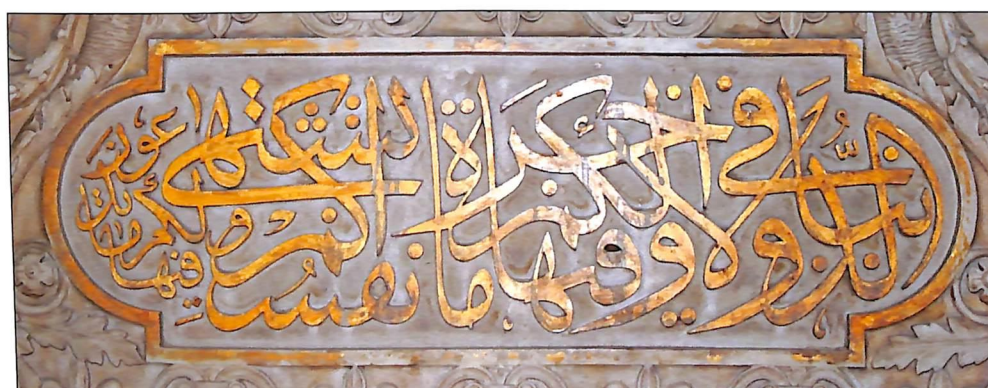 الدنيا وفي الاخرة ولكم فيها ما تشتهي انفسكم ولكم فيها ما تدعون